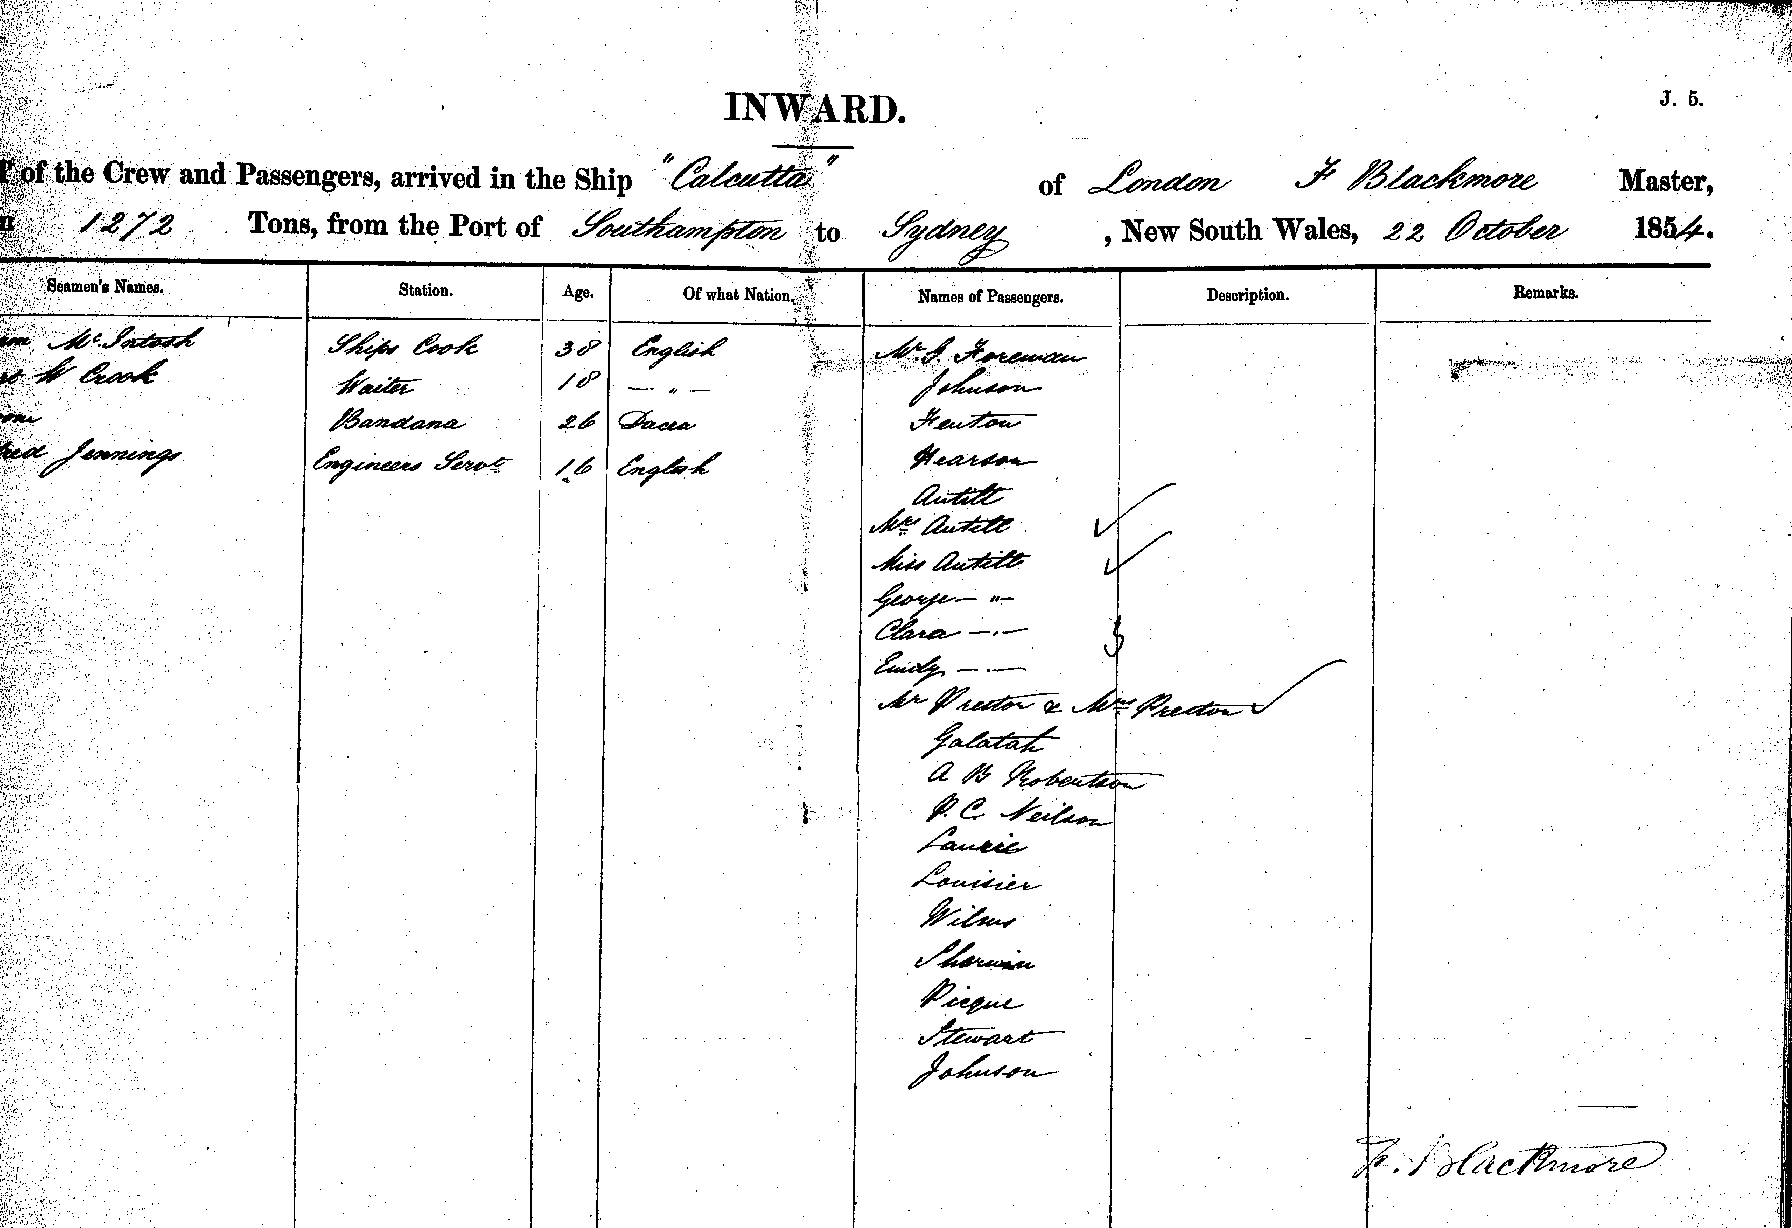 INWARD.
J. 5.
of the Crew and Passengers, arrived in the Ship "Calcutta" of London F Blackmore Master,
1272 Tons, from the Port of Southampton to Sydney, New South Wales, 22 October 1854.
Seamen's Names. Station. Age. Of what Nation. Names of Passengers. Description. Remarks.
McIntosh Ships Cook 38 English Mr J. Foreman
W Crook Waiter 18 — " — Johnson
Bandana 26 Dacca Fenton
Jennings Engineers Servt 16 English Hearson
Antill
Mrs Antill
Miss Antill
George — " —
Clara — " —
Emily — —
Mr Preston & Mrs Preston
Galatah
A B Robertson
P. C. Neilson
Laurie
Louisier
Sherwin
Picque
Stewart
Johnson
F. Blackmore